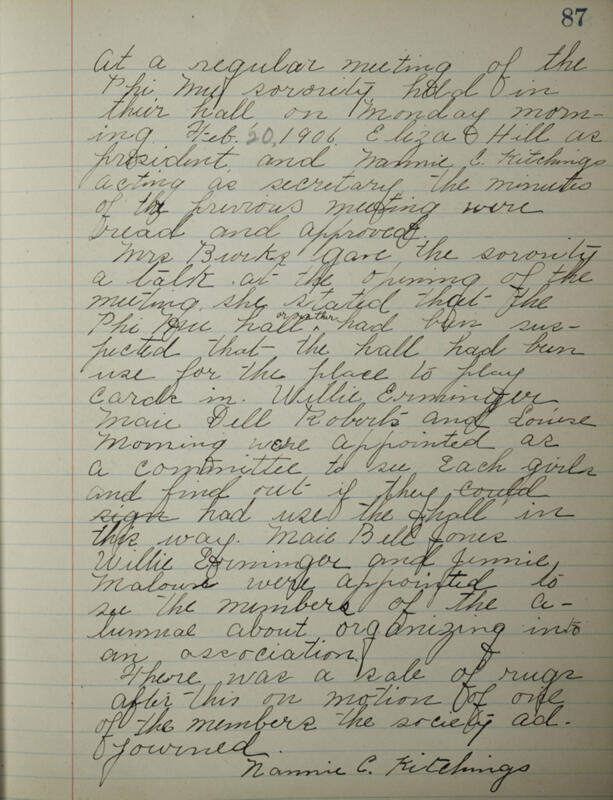 87
At a regular meeting of the
Phi Mu sorority held in
their hall on Monday morn-
ing Feb. 20, 1906. Eliza Hill as
president and Nannie C. Kitchings
acting as secretary the minutes
of the previous meeting were
read and approved.
Mrs Burks gave the sorority
a talk at the opening of the
meeting. she stated that the
Phi Mu hall or rather had been sus-
pected that the hall had been
use for the place to play
cards in. Willie Erminger
Maie Dell Roberts and Louise
Morning were appointed as
a committee to see Each girls
and find out if they could
sign had use the hall in
this way. Maie Bell Jones
Willie Erminger and Jennie
Malone were appointed to
see the members of the a-
lumnae about organizing into
an association.
There was a sale of rugs
after this on motion of one
of the members the society ad-
journed.
Nannie C. Kitchings